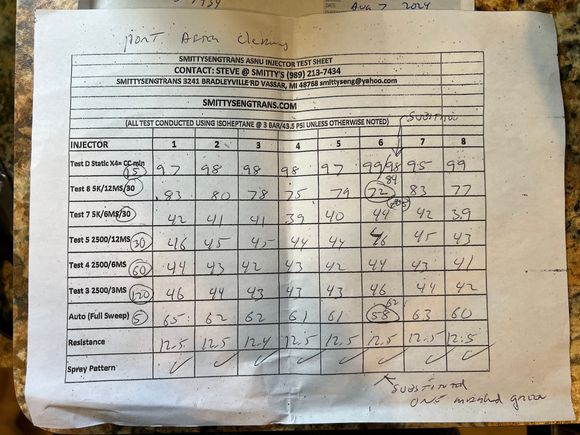 7934
Aug 7 2024
Port After Cleaning
SMITTYSENGTRANS ASNU INJECTOR TEST SHEET
CONTACT: STEVE @ SMITTY'S (989) 213-7434
SMITTYSENGTRANS 3241 BRADLEYVILLE RD VASSAR, MI 48768 smittyseng@yahoo.com
SMITTYSENGTRANS.COM
(ALL TEST CONDUCTED USING ISOHEPTANE @ 3 BAR/43.5 PSI UNLESS OTHERWISE NOTED)
INJECTOR 1 2 3 4 5 6 7 8
Test D Static X4= CC min 15 97 98 98 98 97 99/98 95 99
84
Test 8 5K/12MS/30 83 80 78 75 79 72 83 77
Test 7 5K/6MS/30 42 41 41 39 40 44 42 39
Test 5 2500/12MS 30 46 45 45 44 44 46 45 43
Test 4 2500/6MS 60 44 43 42 43 42 44 43 41
Test 3 2500/3MS 120 46 44 43 43 43 46 44 42
62
Auto (Full Sweep) 5 65 62 62 61 61 58 63 60
Resistance 12.5 12.5 12.4 12.5 12.5 12.5 12.5 12.5
Spray Pattern ✓ ✓ ✓ ✓ ✓ ✓ ✓ ✓
SUBSTITUTED
ONE marked green